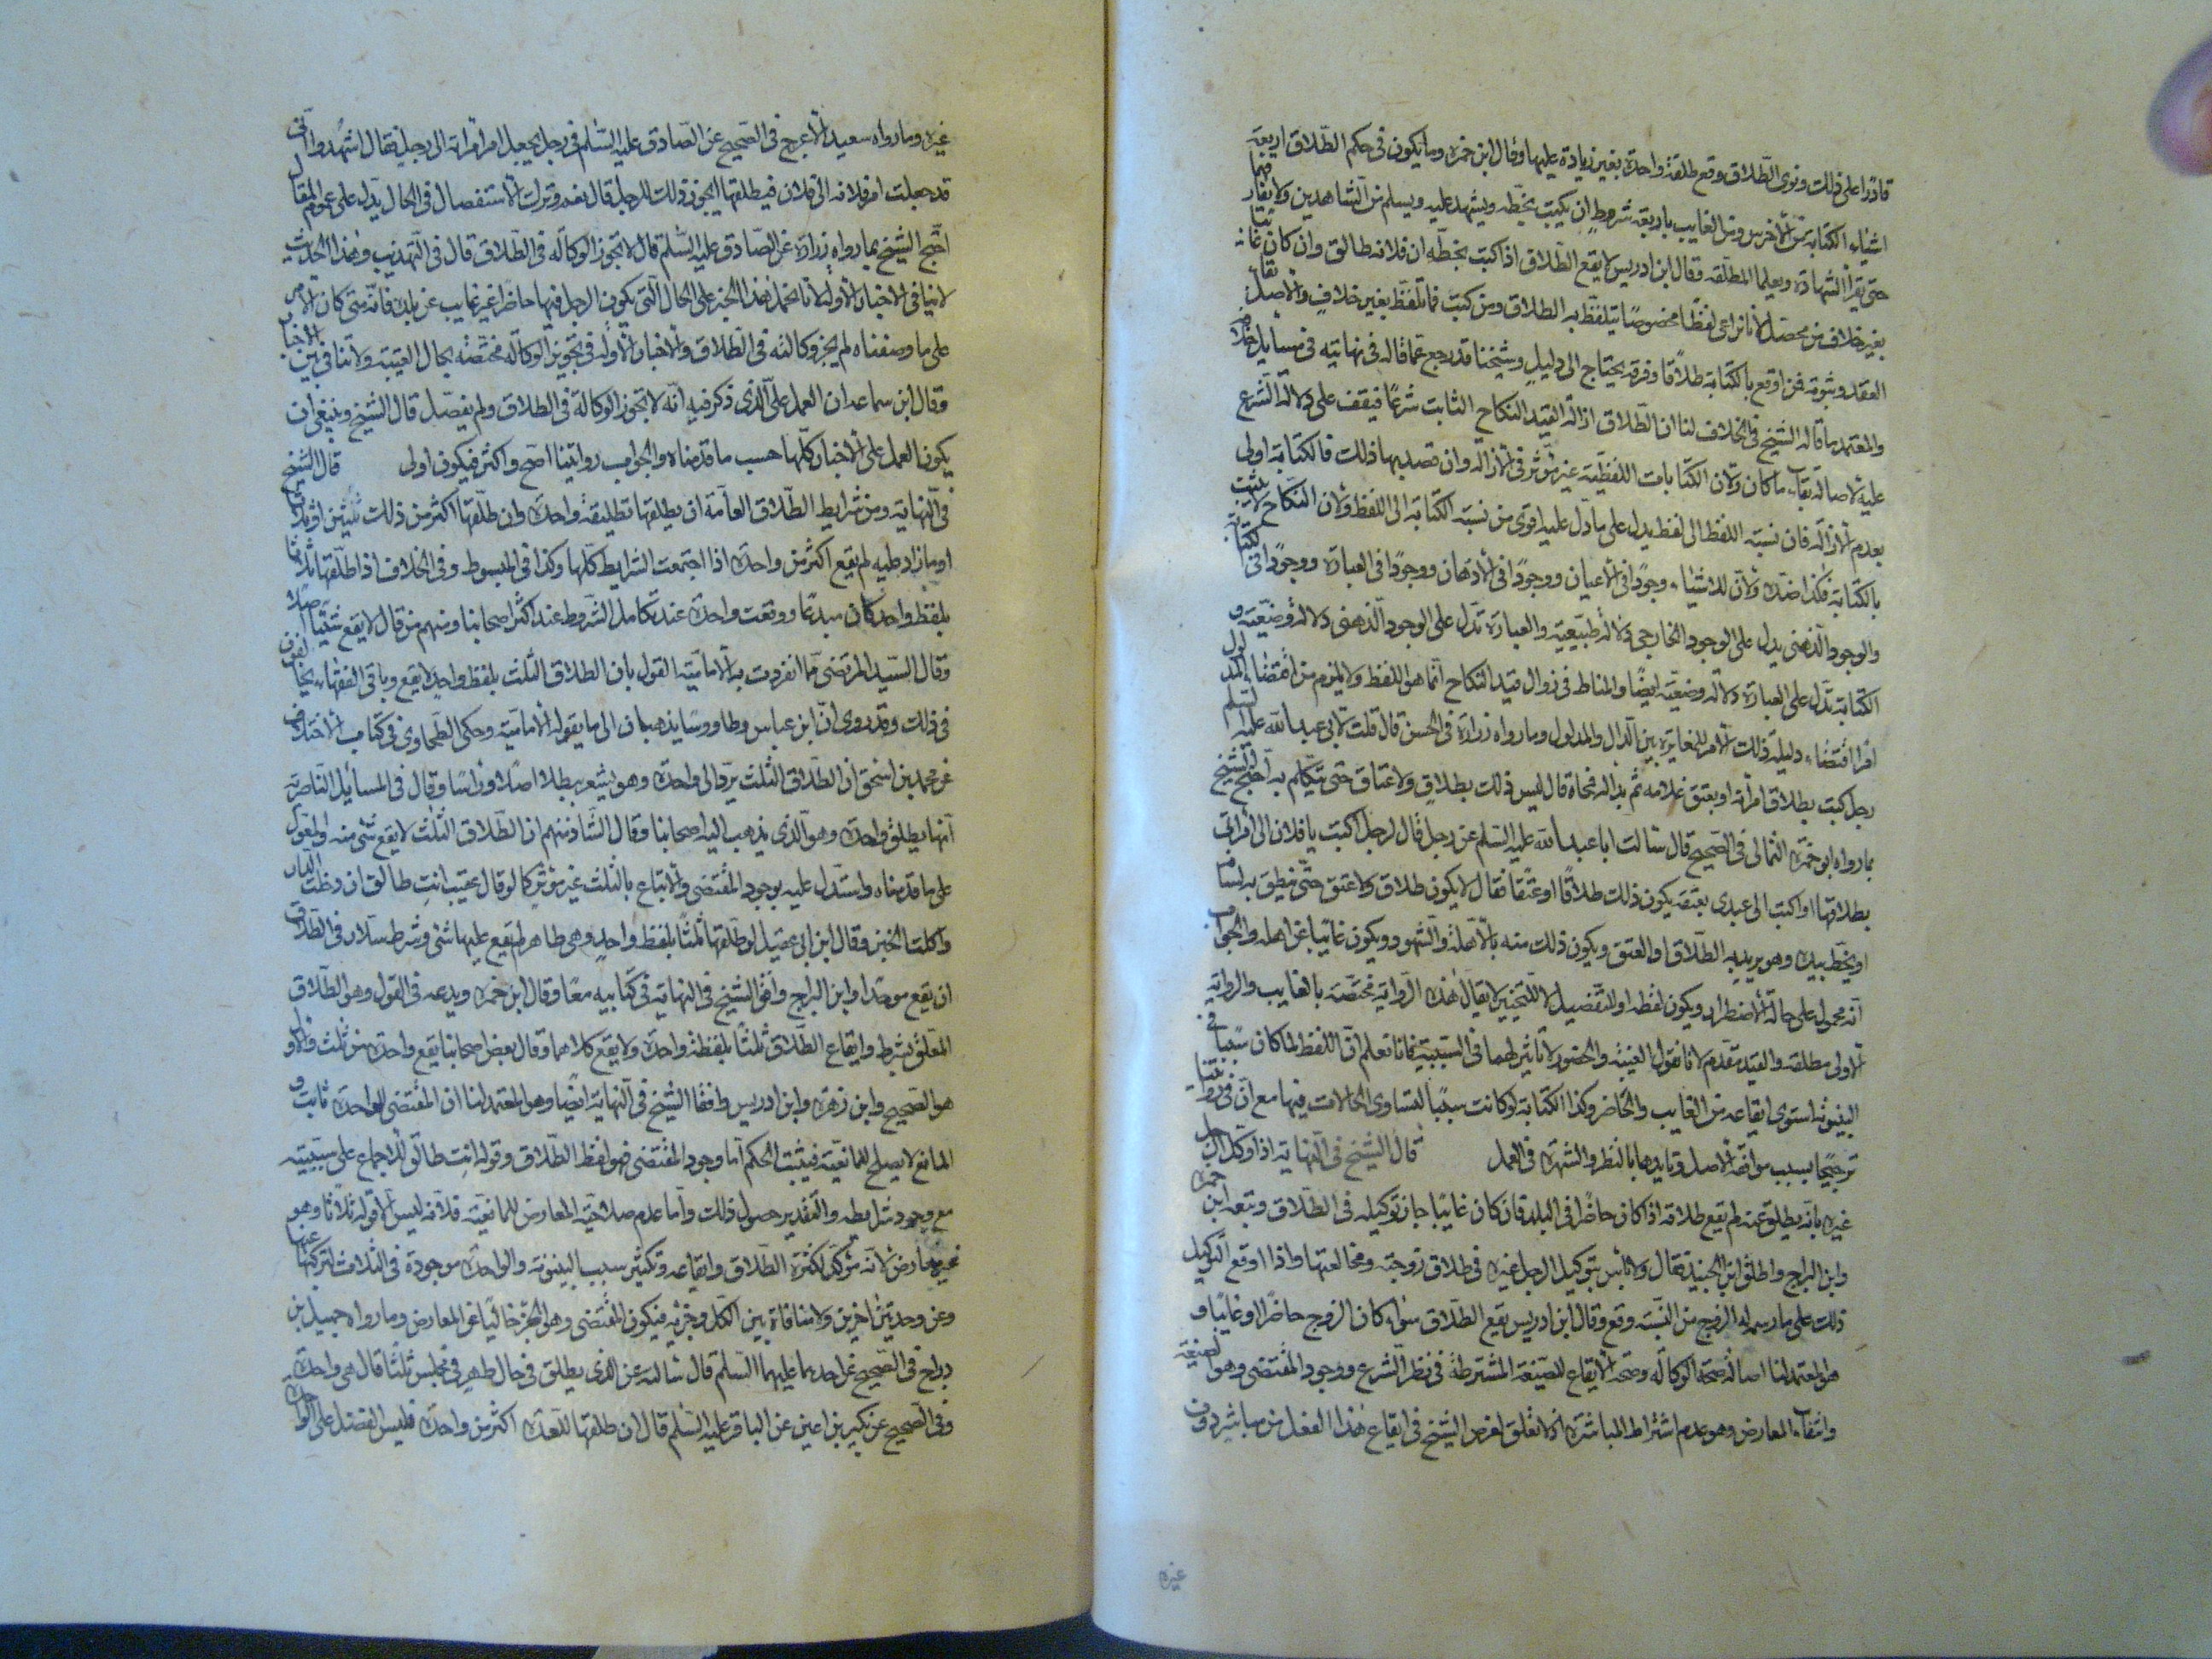 قادرا على ذلك ونوى الطلاق وقع طلقة واحدة بغير زيادة عليها وقال ابن حمزة وما يكون في حكم الطلاق اربعة
اشياء الكتابة من الاخرس ومن الغايب باربعة شروط ان يكتب بخطه ويشهد عليه ويسلم من الشاهدين ولا يفارقهما
حتى يقرا الشهادة ويعلما المطلقة وقال ابن ادريس لا يقع الطلاق اذا كتب بخطه ان فلانة طالق وان كان غائبا
بغير خلاف من محصل لانا نراعى لفظا مخصوصا يتلفظ به الطلاق ومن كتب فما تلفظ بغير خلاف والاصل بقاء
العقد وثبوته فمن اوقع بالكتابة طلاقا وفرقة يحتاج الى دليل وشيخنا قد رجع عما قاله في نهايته في مسايل خلافه
والمعتمد ما قاله الشيخ في الخلاف لنا ان الطلاق ازالة القيد النكاح الثابت شرعا فيقف على دلالة الشرع
عليه لاصالة بقاء ما كان ولان الكنايات اللفظية غير مؤثر في الازالة وان قصد بها ذلك فالكتابة اولى
بعدم الازالة فان نسبة اللفظ الى لفظ يدل على ما دل عليه اقوى من نسبة الكتابة الى اللفظ ولان النكاح لا يثبت
بالكتابة فكذا ضده ولان للاشياء وجودا في الاعيان ووجودا في الاذهان ووجودا في العبارة ووجودا في الكتابة
والوجود الذهني يدل على الوجود الخارجي دلالة طبيعية والعبارة تدل على الوجود الذهني دلالة وضعية و
الكتابة تدل على العبارة دلالة وضعية ايضا والمناط في زوال قيد النكاح انما هو اللفظ ولا يلزم من اقتضاء المدلول
امرا اقتضاء دليله ذلك الامر للمغايرة بين الدال والمدلول وما رواه زرارة في الحسن قال قلت لابي عبد الله عليه السلم
رجل كتب بطلاق امراته او بعتق غلامه ثم بدا له فمحاه قال ليس ذلك بطلاق ولا عتاق حتى يتكلم به احتج الشيخ
بما رواه ابو حمزة الثمالى في الصحيح قال سالت ابا عبد الله عليه السلم عن رجل قال لرجل اكتب يا فلان الى امراتى
بطلاقها او اكتب الى عبدى بعتقه يكون ذلك طلاقا او عتقا فقال لا يكون طلاق ولا عتق حتى ينطق به لسانه
او يخط بيده وهو يريد به الطلاق او العتق ويكون ذلك منه بالاهلة والشهود ويكون غائبا عن اهله والجواب
انه محمول على حالة الاضطرار ويكون لفظه او للتفصيل لا للتخيير لا يقال هذه الرواية مختصة بالغايب والرواية
الاولى مطلقة والقيد مقدم لانا نقول الغيبة والحضور لا تاثير لهما في السببية فانا نعلم ان اللفظ لما كان سببا في
البينونة استوى ايقاعه من الغايب والحاضر وكذا الكتابة لو كانت سببا لتساوى الحالات فيها مع ان في روايتنا
ترجيحا بسبب موافقة الاصل وتايدها بالنظر والشهرة في العمل قال الشيخ في النهاية اذا وكل الرجل
غيره بانه يطلق عنه لم يقع طلاقه اذا كان حاضرا في البلد فان كان غايبا جاز توكيله في الطلاق وتبعه ابن حمزة
وابن البراج واطلق ابن الجنيد فقال ولا باس بتوكيل الرجل غيره في طلاق زوجته ومخالعتها واذا اوقع الوكيل
ذلك على ما رسم له الزوج من السنة وقع وقال ابن ادريس يقع الطلاق سواء كان الزوج حاضرا او غايبا و
هو المعتمد لنا اصالة صحة الوكالة وصحة الايقاع للصيغة المشترطة في نظر الشرع ووجود المقتضى وهو الصيغة
وانتفاء المعارض وهو عدم اشتراط المباشرة اذ لا تعلق لغرض الشيخ في ايقاع هذا الفعل من مباشر دون
غيره
غيره وما رواه سعيد الاعرج في الصحيح عن الصادق عليه السلم في رجل يجعل امر امراته الى رجل فقال اشهدوا انى
قد جعلت امر فلانة الى فلان فيطلقها ايجوز ذلك للرجل قال نعم وترك الاستفصال في الحال يدل على عموم المقال
احتج الشيخ بما رواه زرارة عن الصادق عليه السلم قال لا تجوز الوكالة في الطلاق قال في التهذيب وهذا الحديث
لا ينافى الاخبار الاولة لانا نحمل هذا الخبر على الحال التى يكون الرجل فيها حاضرا غير غايب عن بلده فانه متى كان الامر
على ما وصفناه لم يجز وكالته في الطلاق والاخبار الاولة في تجويز الوكالة مختصة بحال الغيبة ولا تنافى بين الاخبار
وقال ابن سماعة ان العمل على الذى ذكر فيه انه لا تجوز الوكالة في الطلاق ولم يفصل قال الشيخ وينبغى ان
يكون العمل على الاخبار كلها حسب ما قدمناه والجواب روايتنا اصح واكثر فيكون اولى قال الشيخ
في النهاية ومن شرايط الطلاق العامة ان يطلقها تطليقة واحدة وان طلقها اكثر من ذلك ثنتين او ثلاثا
او ما زاد عليه لم يقع اكثر من واحدة اذا اجتمعت الشرايط كلها وكذا في المبسوط وفي الخلاف اذا طلقها ثلاثا
بلفظ واحد كان مبدعا ووقعت واحدة عند تكامل الشروط عند اكثر اصحابنا ومنهم من قال لا يقع شيئا اصلا
وقال السيد المرتضى مما انفردت به الامامية القول بان الطلاق الثلث بلفظ واحد لا يقع وباقى الفقهاء يخالفون
في ذلك وقد روى ان ابن عباس وطاووسا يذهبان الى ما يقوله الامامية وحكى الطحاوى في كتاب الاختلاف
عن محمد بن اسحق ان الطلاق الثلث يرد الى واحدة وهو يشعر ببطلا اصلا وراسا وقال في المسائل الناصرية
انها يطلق واحدة وهو الذى يذهب اليه اصحابنا وقال الشاذ منهم ان الطلاق الثلث لا يقع شئ منه والمعول
على ما قدمناه واستدل عليه بوجود المقتضى والاتباع بالثلث غير مؤثر كما لو قال عقيب انت طالق ان دخلت الدار
واكلت الخبز وقال ابن ابي عقيل لو طلقها ثلثا بلفظ واحد وهى طاهر لم يقع عليها شئ وشرط سلار في الطلاق
ان يقع موحدا وابن البراج وافق الشيخ في النهاية في كتابيه معا وقال ابن حمزة وبدعه في القول وهو الطلاق
المعلق بشرط وايقاع الطلاق ثلثا بلفظة واحدة ولا يقع كلاهما وقال بعض اصحابنا يقع واحدة من ثلث والاول
هو الصحيح وابن زهرة وابن ادريس وافقا الشيخ في النهاية ايضا وهو المعتمد لنا ان المقتضى للواحدة ثابت و
المانع لا يصلح للمانعية فيثبت الحكم اما وجود المقتضى فهو لفظ الطلاق وقوله انت طالق للاجماع على سببيته
مع وجود شرايطه والتقدير حصول ذلك واما عدم صلاحية المعارض للمانعية فلانه ليس الا قوله ثلاثا وهو
غير معارض لانه مؤكد لكثرة الطلاق وايقاعه وتكثير سبب البينونة والواحدة موجودة في الثلاث لتركبها عنها
وعن وحدتين اخرتين ولا منافاة بين الكل وجزئه فيكون المقتضى وهو الجزء خاليا عن المعارض وما رواه جميل بن
دراج في الصحيح عن احدهما عليهما السلم قال سالته عن الذى يطلق في حال طهر في مجلس ثلثا قال هى واحدة
وفي الصحيح عن بكير بن اعين عن الباقر عليه السلم قال ان طلقها للعدة اكثر من واحدة فليس الفضل على الواحدة